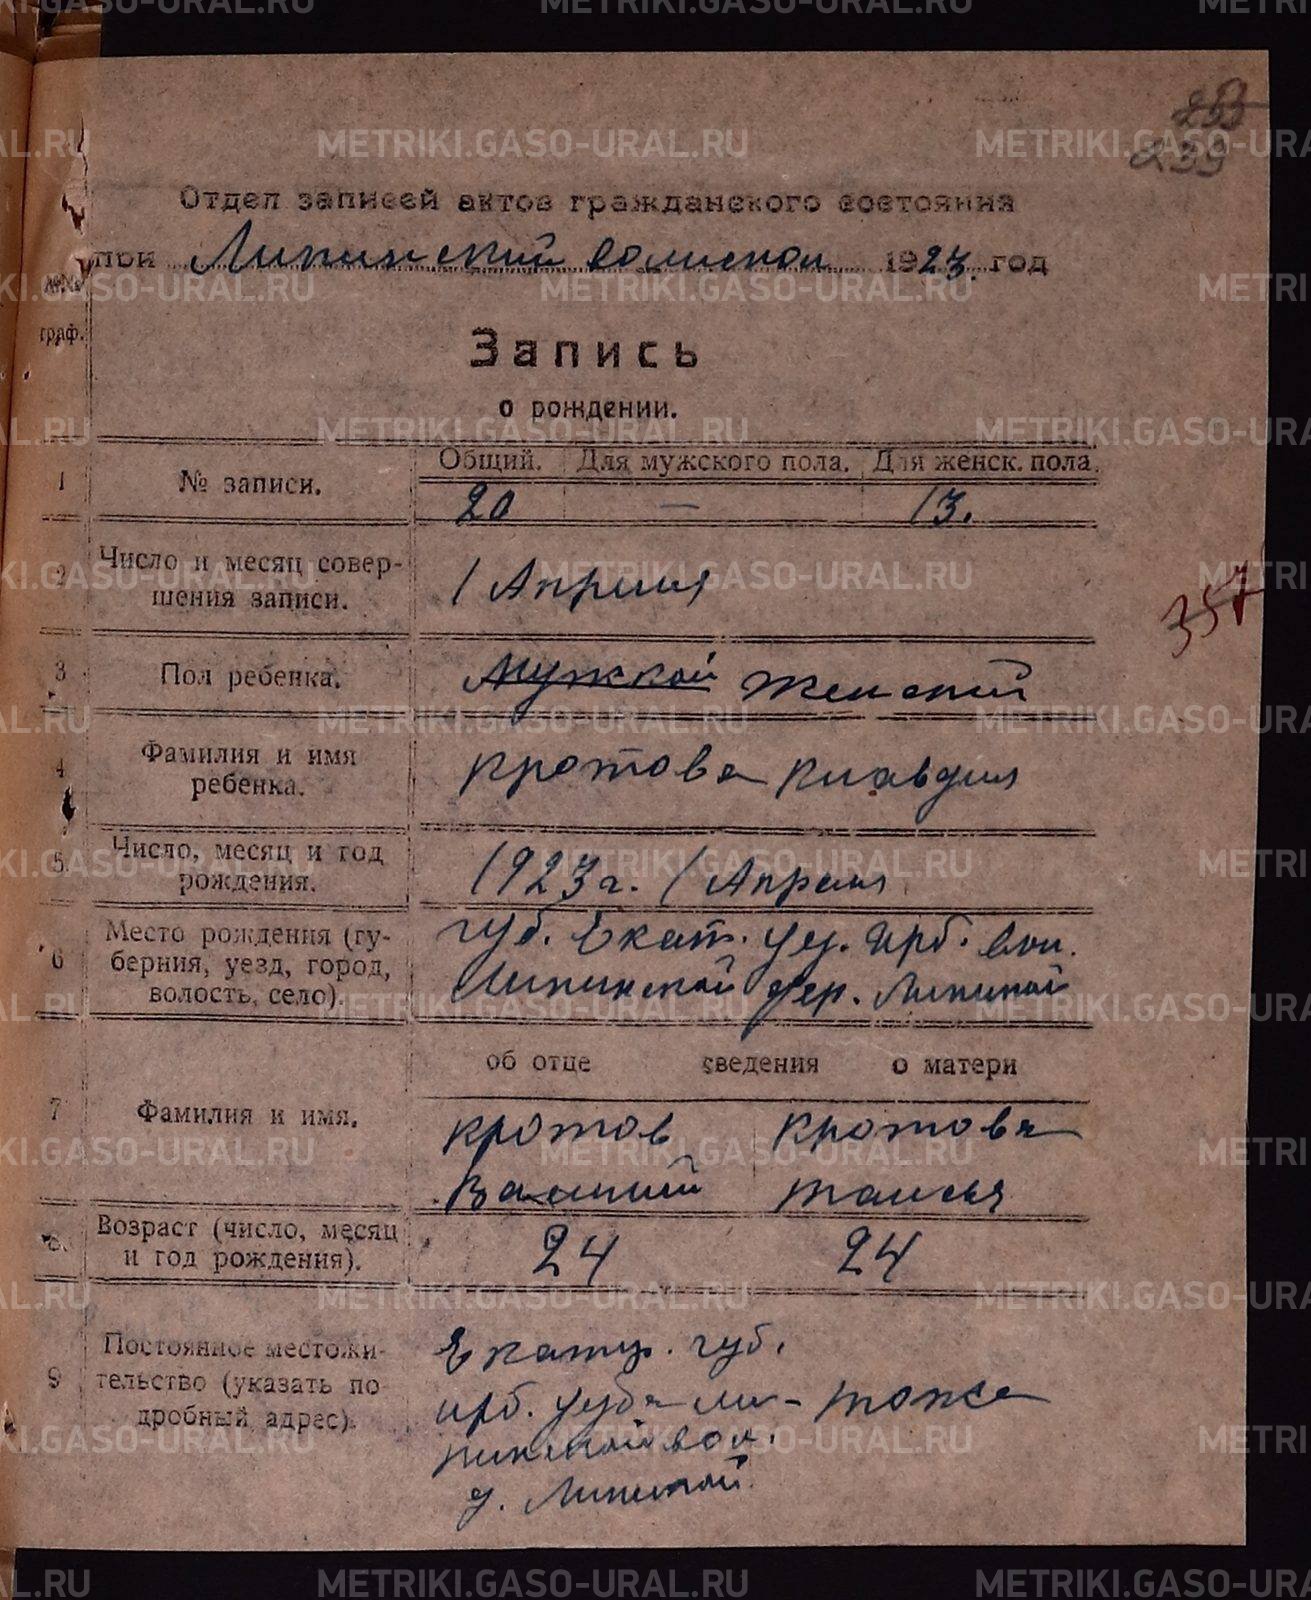 253
239
Отдел записей актов гражданского состояния
при Липинский волиском 1923. год
№№ граф.
Запись
о рождении.
Общий. Для мужского пола. Для женск. пола.
1 № записи. 20 — 13.
2 Число и месяц совер-
шения записи. 1 Апреля
357
3 Пол ребенка. Мужской Женский
4 Фамилия и имя
ребенка. Кротова Клавдия
5 Число, месяц и год
рождения. 1923 г. 1 Апреля
6 Место рождения (гу-
берния, уезд, город,
волость, село).
губ. Екат. уез. Ирб. вол.
Липинской дер. Липиной
об отце сведения о матери
7 Фамилия и имя.
Кротов Кротова
Василий Таисья
8. Возраст (число, месяц
и год рождения). 24 24
9 Постоянное местожи-
тельство (указать по
дробный адрес).
Екатер. губ.
Ирб. уезда Ли- тоже
пинской вол.
д. Липиной
METRIKI.GASO-URAL.RU